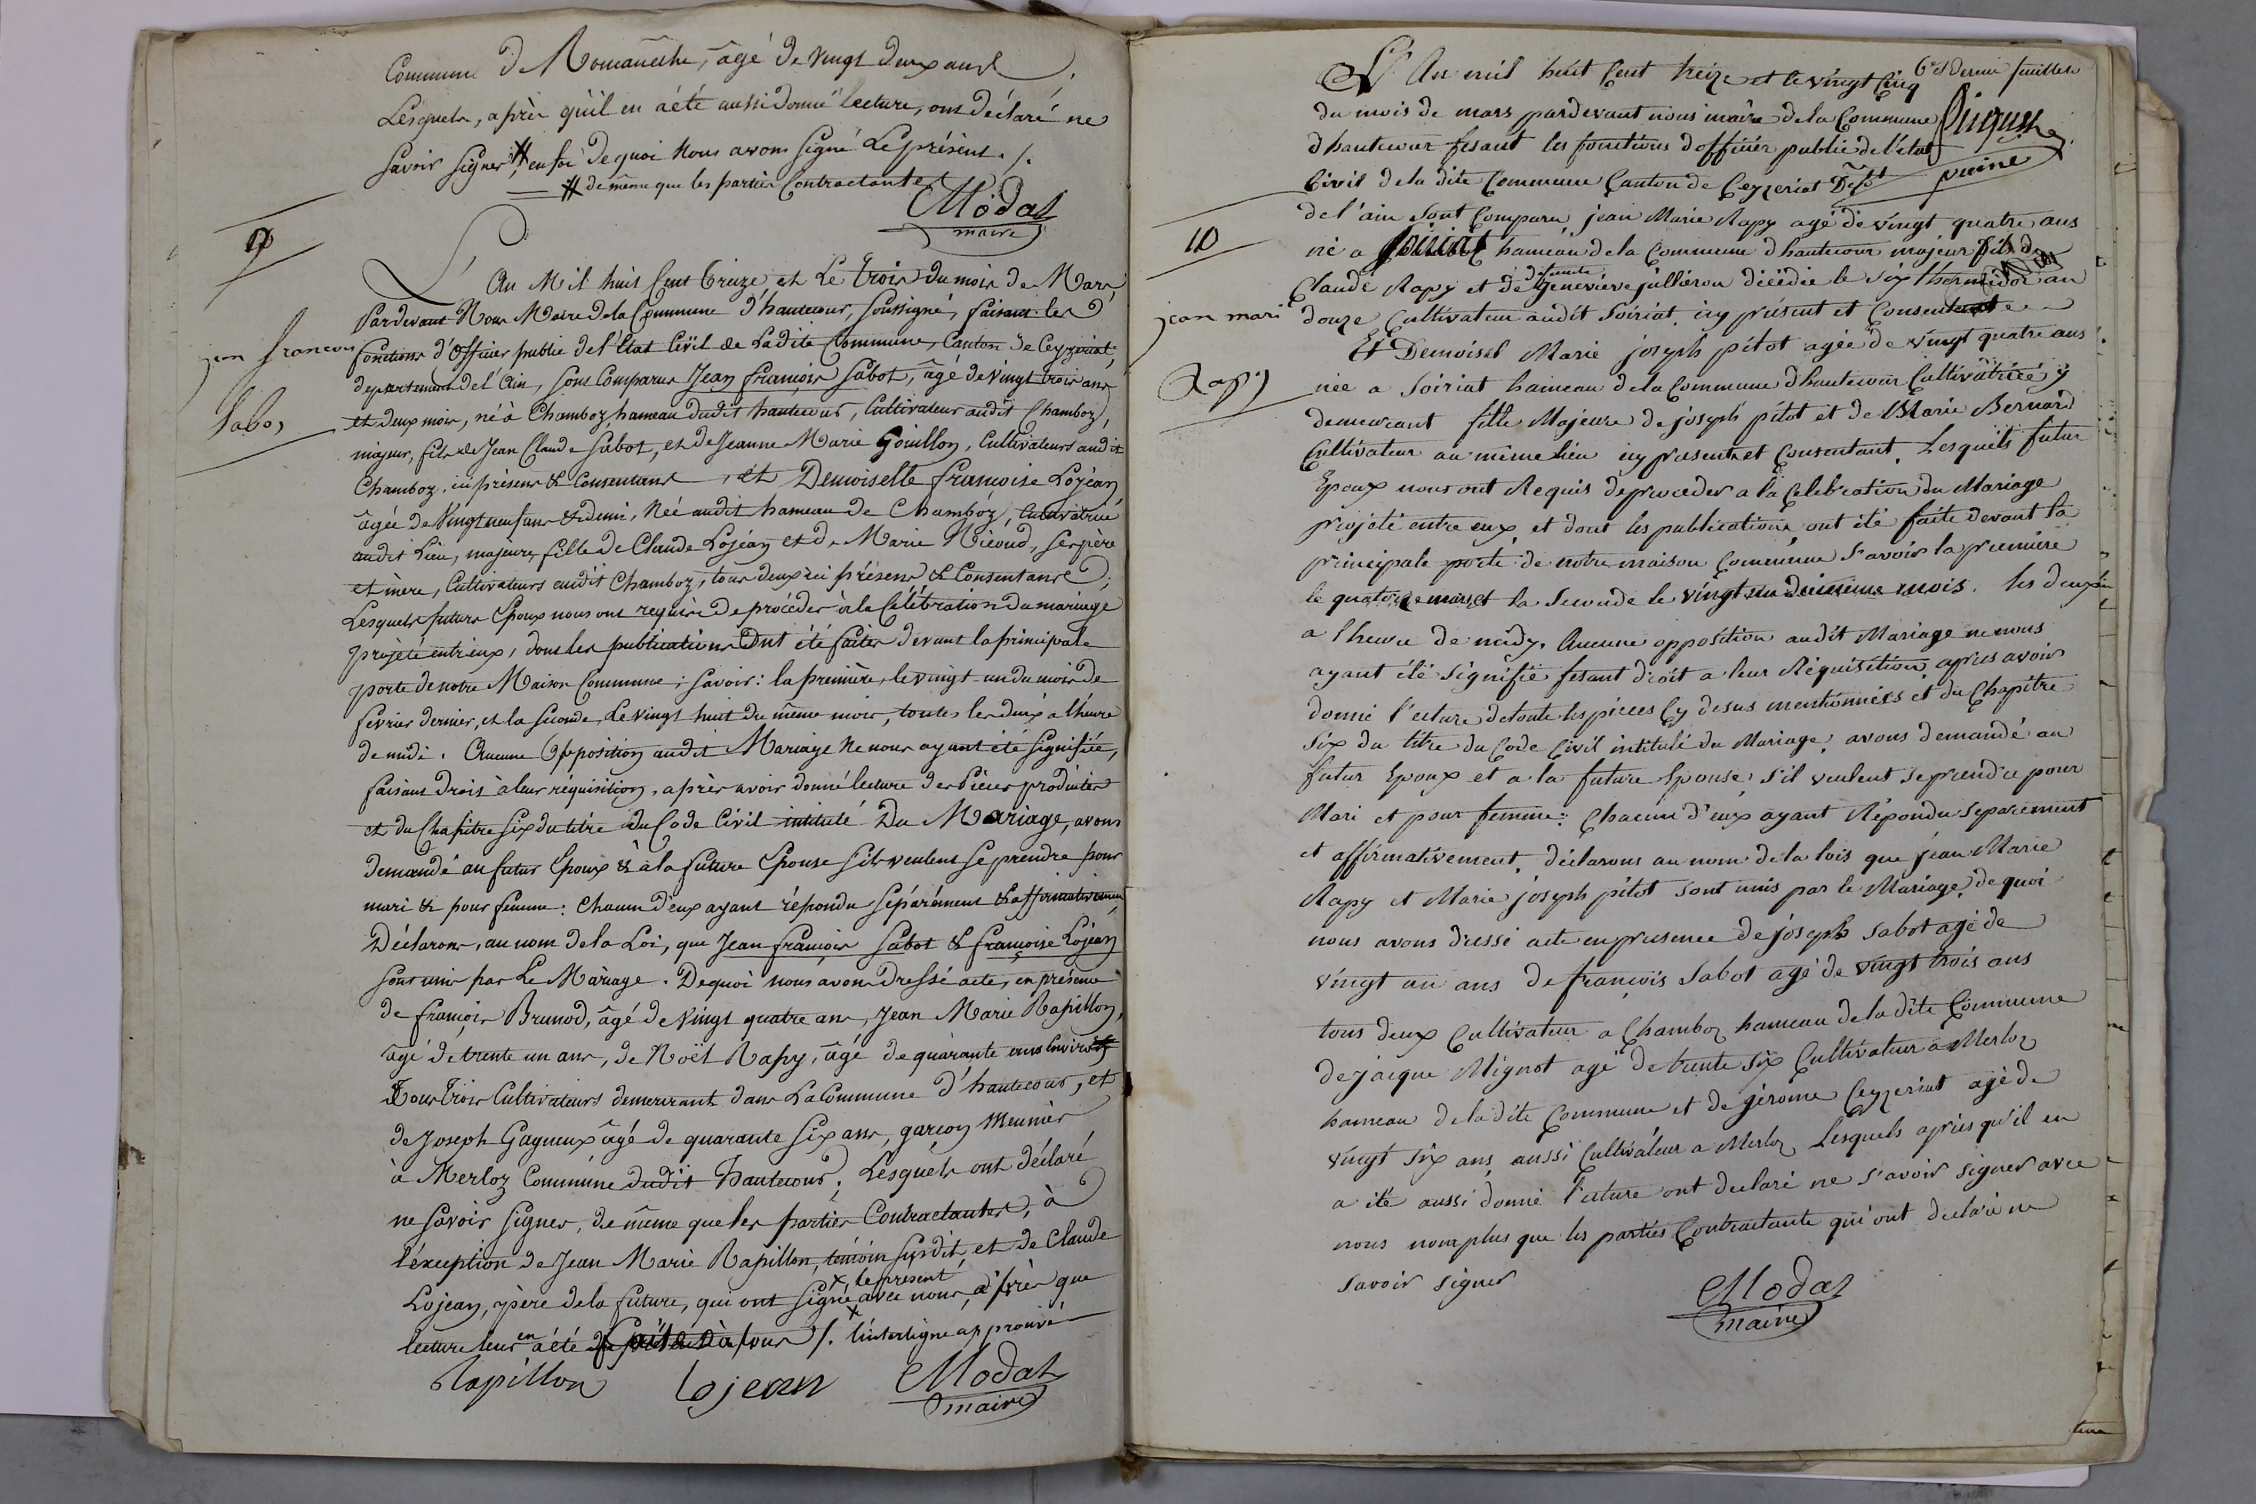 Commune De Romanêche, âgé de vingt deux ans
Lesquels, après qu'il en a été aussi donné lecture, ont déclaré ne
savoir signer # en foi de quoi Nous avons signé Le présent ./.
# de même que les parties Contractantes
Modas
maire
9
jean francois
Sabot
L'An Mil huit Cent treize et Le trois du mois de Mars
Pardevant Nous Maire de la Commune d'hautecour, soussigné, faisant les
fonctions d'Officier public de l'État Civil de Ladite Commune, Canton de Ceyzeriat,
departement de l'Ain, sont Comparus Jean françois Sabot, âgé de vingt trois ans
et deux mois, né à Chamboz, hameau dudit hautecour, Cultivateur audit Chamboz,
majeur, fils de Jean Claude Sabot, et de Jeanne Marie Gouillon, Cultivateurs audit
Chamboz, ici présens & Consentans, et Demoiselle françoise Lojean
âgée de Vingt neuf ans & demi, Née audit hameau de Chamboz, Cultivatrice
audit Lieu, majeure, fille de Claude Lojean et de Marie Nicoud, ses père
et mère, Cultivateurs audit Chamboz, tous deux ici présens & Consentans ;
Lesquels futurs Epoux nous ont requis de procéder à la Célébration du mariage
projeté entr'eux, dont les publications Ont été faites devant la principale
porte de notre Maison Commune ; savoir : la première, le vingt-un du mois de
fevrier dernier, et la seconde, Le vingt huit du même mois, toutes les deux à l'heure
de midi. Aucune Opposition audit Mariage Ne nous ayant été signifiée,
faisant droit à leur réquisition, après avoir donné lecture des Pièces produites
et du Chapitre six du titre du Code Civil intitulé Du Mariage, avons
demandé au futur Epoux & à la future Epouse s'ils veulent se prendre pour
mari & pour femme : Chacun d'eux ayant répondu séparément & affirmativement
Déclarons, au nom de la Loi, que Jean françois Sabot & françoise Lojean
sont unis par Le Mariage. De quoi nous avons dressé acte, en présence
de françois Brunod, âgé de Vingt quatre ans, Jean Marie Rapillon,
âgé de trente un ans, de Noël Rapy, âgé de quarante ans
Tous trois Cultivateurs demeurant dans La Commune d'hautecour, et
de Joseph Gagneux âgé de quarante six ans, garçon Meunier
à Merloz Commune dudit hautecour ; Lesquels ont déclaré
ne savoir signer, de même que les parties Contractantes, à
l'éxception de Jean Marie Rapillon, témoin susdit, et de Claude
x, le present
Lojean, père de la future, qui ont signé avec nous, après que
lecture leur en a été ./. x l'interligne approuvé
Rapillon Lojean Modas
maire
6e et dernier feuillet
L'An mil huit Cent treize et le vingt Cinq
du mois de mars pardevant nous maire de la Commune
d hautecour fesant les fonctions d officier public de l'état
Civil de la dite Commune Canton de Ceyzeriat Dept
10
jean mari
Rapy
de l'ain sont Comparu jean Marie Rapy agé de vingt quatre ans
né a Soiriat hameau de la Commune d hautecour majeur fils de
defunte
Claude Rapy et de Genevieve jullieron décédée le six thermidor an
douze Cultivateur audit Soiriat icy présent et Consentent
Et Demoisel Marie joseph pitot agée de vingt quatre ans
née a Soiriat hameau de la Commune d hautecour Cultivatrice y
demeurant fille Majeure de joseph pitot et de Marie Bernard
Cultivateur au même lieu icy present et Consentant. Lesquels futur
Epoux nous ont Requis de proceder a la Celebration du Mariage
projeté entre eux et dont les publications ont été faite devant la
principale porte de notre maison Commune s'avoir la premiere
le quatorze mars et la seconde le vingt un du même mois. les deux
a l heure de midy. Aucune opposition audit Mariage ne nous
ayant été signifié fesant droit a leur Réquisition, apres avoir
donné l'ecture de toute les pieces Cy desus mentionnées et du Chapitre
Six du titre du Code Civil intitulé du Mariage, avons demandé au
futur Epoux et a la future Epouse s'il veulent se prendre pour
Mari et pour femme : Chacun d'eux ayant Répondu separement
et affirmativement, déclarons au nom de la lois que jean Marie
Rapy et Marie joseph pitot sont unis par le Mariage, de quoi
nous avons dressé acte en presence de joseph Sabot agé de
vingt un ans de françois Sabot agé de vingt trois ans
tous deux Cultivateur a Chamboz hameau de la dite Commune
de jacque Mignot agé de trente six Cultivateur a Merloz
hameau de la dite Commune et de jérome Ceyzeriat agé de
vingt six ans aussi Cultivateur a Merloz Lesquels après qu'il en
a été aussi donné l'ecture ont declaré ne s'avoir signer avec
nous nomplus que les parties Contractante qui ont declaré ne
savoir signer
Modas
maire